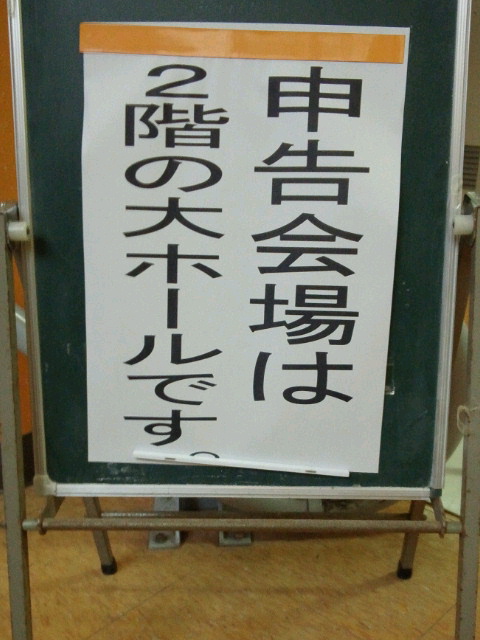 申告会場は
2階の大ホールです。